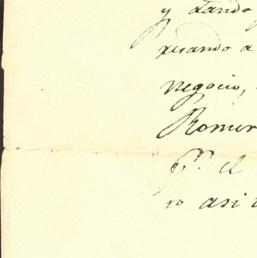 y dando
quando a
negocio,
Romer
pr. el
ro asi